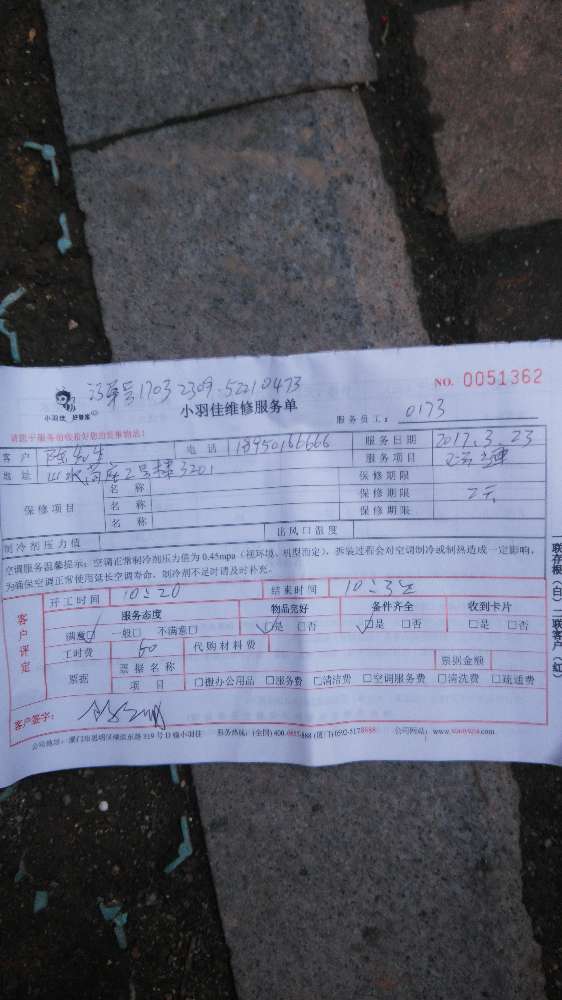 订单号1703 2309 52210473
NO. 0051362
小羽佳 好帮家
小羽佳维修服务单
服务员工: 0173
请您于服务前收拾好您的贵重物品!
客户 陈先生 电话 18950166666 服务日期 2017.3.23
地址 山水 2号楼3201 服务项目
保修项目
名称 保修期限
名称 保修期限
名称 保修期限
制冷剂压力值 出风口温度
空调服务温馨提示: 空调正常制冷剂压力值为0.45mpa (视环境、机型而定), 拆装过程会对空调制冷或制热造成一定影响,
为确保空调正常使用延长空调寿命, 制冷剂不足时请及时补充.
客户评定
开工时间 10:20 结束时间 10:32
服务态度 物品完好 备件齐全 收到卡片
满意☑ 一般□ 不满意□ ☑是 □否 ☑是 □否 □是 □否
工时费 60 代购材料费
票据 票据名称 票据金额
项目 □搬办公用品 □服务费 □清洁费 □空调服务费 □清洗费 □疏通费
客户签字:
公司地址: 厦门市思明区 服务热线: (全国) 400 (厦门) 公司网站:
一联存根(白) 二联客户(红)